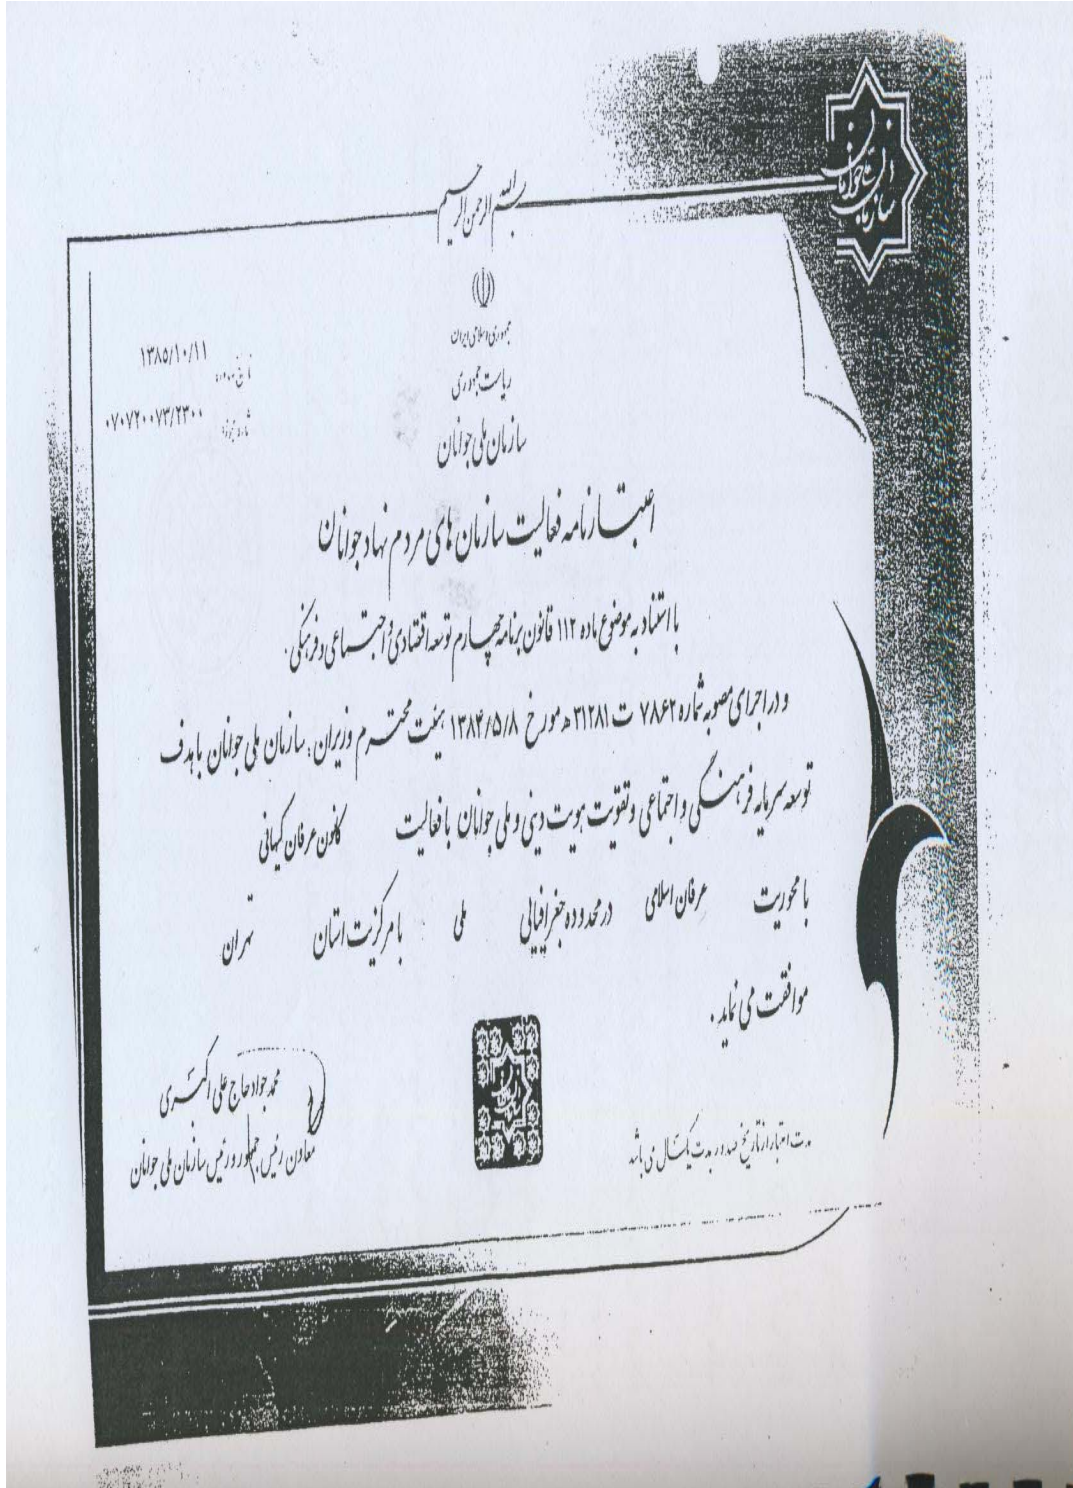 سازمان ملی جوانان
بسم الله الرحمن الرحیم
جمهوری اسلامی ایران
ریاست جمهوری
سازمان ملی جوانان
تاریخ صدور: ۱۳۸۵/۱۰/۱۱
شماره مجوز: ۰۷۰۷۲۰۰۷۳/۲۳۰۰
اعتبارنامه فعالیت سازمان های مردم نهاد جوانان
با استناد به موضوع ماده ۱۱۲ قانون برنامه چهارم توسعه اقتصادی و اجتماعی و فرهنگی،
و در اجرای مصوبه شماره ۷۸۶۲ ت ۳۱۲۸۱ ه مورخ ۱۳۸۴/۵/۸ هیئت محترم وزیران، سازمان ملی جوانان با هدف
توسعه سرمایه فرهنگی و اجتماعی و تقویت هویت دینی و ملی جوانان با فعالیت کانون عرفان کیهانی
با محوریت عرفان اسلامی در محدوده جغرافیایی ملی با مرکزیت استان تهران
موافقت می نماید.
محمد جواد حاج علی اکبری
معاون رئیس جمهور و رئیس سازمان ملی جوانان
مدت اعتبار از تاریخ صدور بمدت یکسال می باشد